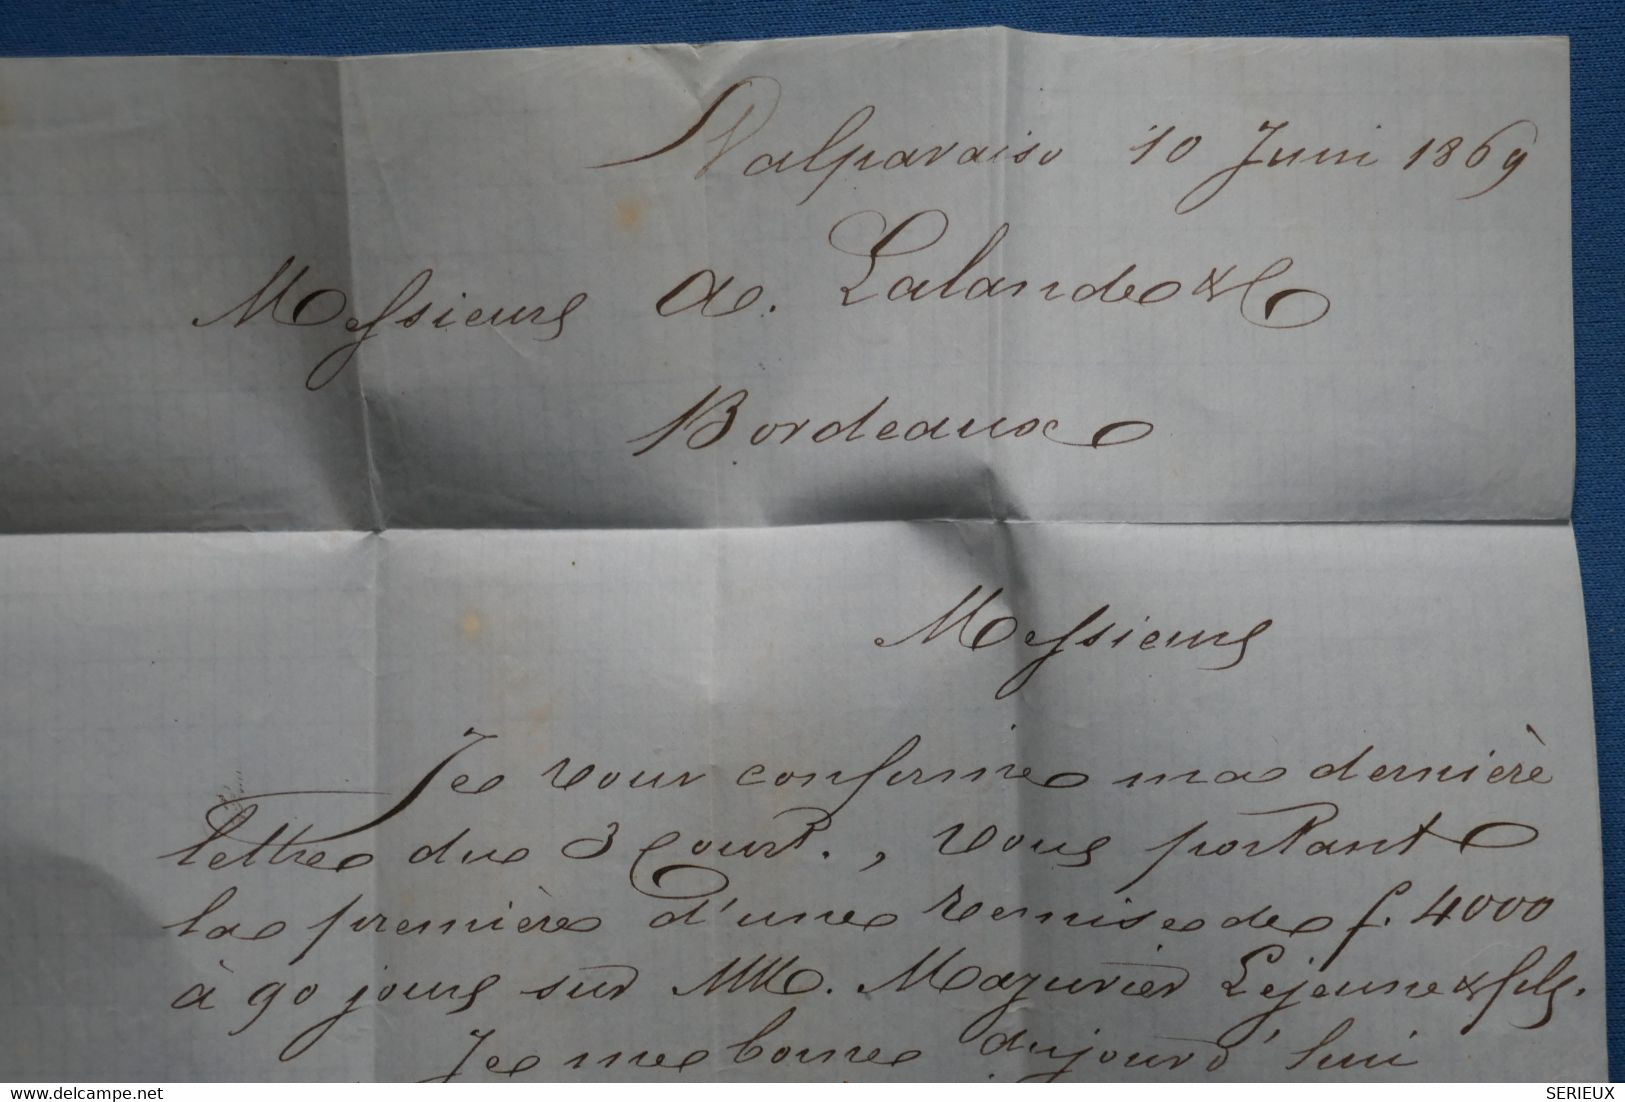 Valparaiso 10 Juin 1869
Messieurs A. Lalande & C
Bordeaux
Messieurs
Je vous confirme ma dernière
lettre du 3 Court., vous portant
la première d'une remise de f. 4000
à 90 jours sur MM. Mazurier Lejeune & fils.
Je me borne aujourd'hui
www.delcampe.net
SERIEUX